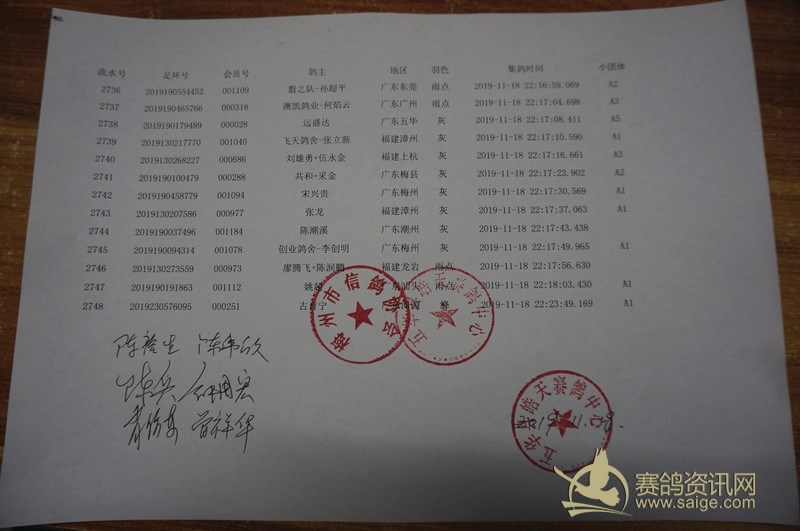 流水号 足环号 会员号 鸽主 地区 羽色 集鸽时间 小团体
2736 20191​90554452 001109 磊之队-孙超平 广东东莞 雨点 2019-11-18 22:16:59.069 A2
2737 2019190465766 000318 澳凯鸽业-何焰云 广东广州 雨点 2019-11-18 22:17:04.698 A3
2738 2019190179489 000028 远盛达 广东五华 灰 2019-11-18 22:17:08.411 A5
2739 2019130217770 001040 飞天鸽舍-张立新 福建漳州 灰 2019-11-18 22:17:10.590 A1
2740 2019130268227 000686 刘雄勇+伍永金 福建上杭 灰 2019-11-18 22:17:16.661 A3
2741 2019190100479 000288 共和+采金 广东梅县 灰 2019-11-18 22:17:23.902 A2
2742 2019190458779 001094 宋兴贵 广东梅州 灰 2019-11-18 22:17:30.569 A1
2743 2019130207586 000977 张龙 福建漳州 灰 2019-11-18 22:17:37.063 A1
2744 2019190037496 001184 陈潮溪 广东潮州 灰 2019-11-18 22:17:43.438
2745 2019190094314 001078 创业鸽舍-李创明 广东梅州 灰 2019-11-18 22:17:49.965 A1
2746 2019130273559 000973 廖腾飞+陈润鹏 福建龙岩 雨点 2019-11-18 22:17:56.630
2747 2019190191863 001112 姚 广东汕头 雨点 2019-11-18 22:18:03.430 A1
2748 2019230576095 000251 古 宁 2019-11-18 22:23:49.169 A1
梅州市信鸽协会
五华县皓天赛鸽中心
五华县皓天赛鸽中心
2019.11.18.
曾祥华
赛鸽资讯网
www.saige.com